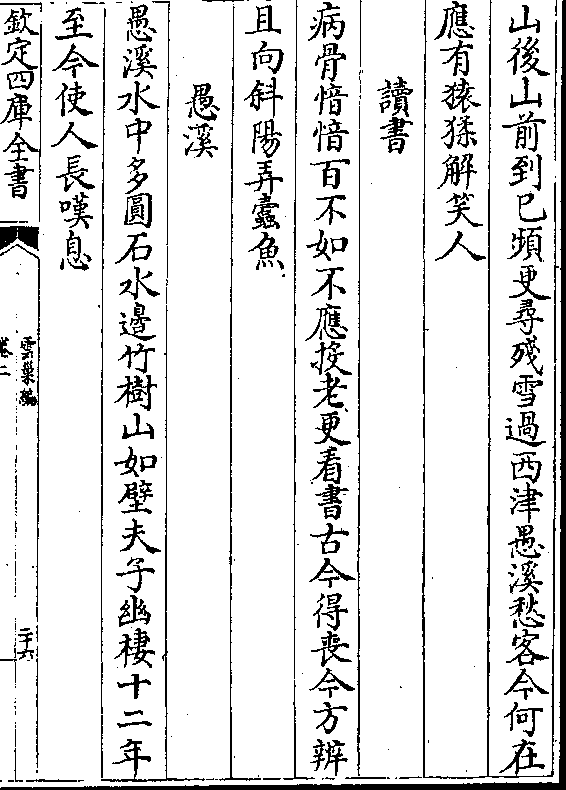 山後山前到已頻更尋殘雪過西津愚溪愁客今何在
應有猿猱解笑人
讀書
病骨愔愔百不如不應投老更看書古今得喪今方辨
且向斜陽弄蠹魚
愚溪
愚溪水中多圓石水邉竹樹山如壁夫子幽棲十二年
至今使人長嘆息
欽定四庫全書
雲巢編
卷二
二十六